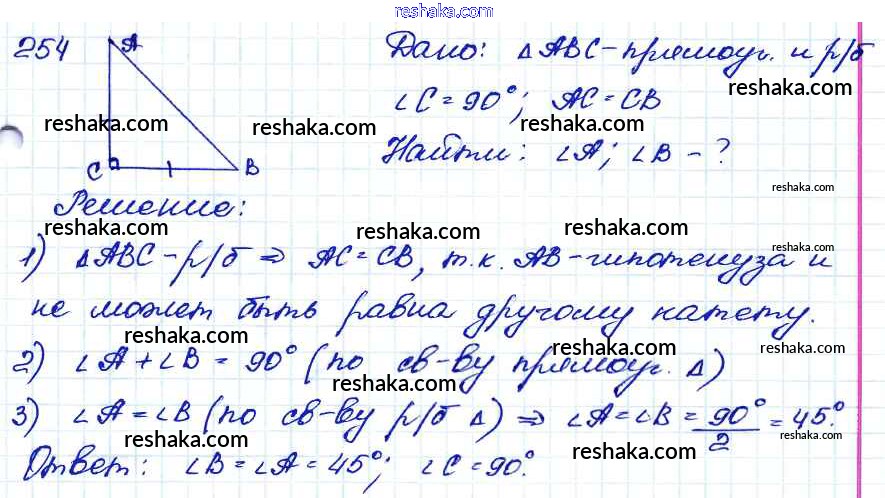 reshaka.com
254 A Дано: ΔABC-прямоуг. и р/б
∠C = 90°; AC = CB
reshaka.com reshaka.com reshaka.com
Найти: ∠A; ∠B - ?
C B
reshaka.com
Решение:
reshaka.com reshaka.com reshaka.com
1) ΔABC-р/б ⇒ AC = CB, т.к. AB-гипотенуза и
reshaka.com
не может быть равна другому катету.
reshaka.com reshaka.com reshaka.com
2) ∠A + ∠B = 90° (по св-ву прямоуг. Δ)
reshaka.com
3) ∠A = ∠B (по св-ву р/б Δ) ⇒ ∠A = ∠B = 90°/2 = 45°.
reshaka.com reshaka.com reshaka.com
Ответ: ∠B = ∠A = 45°; ∠C = 90°.